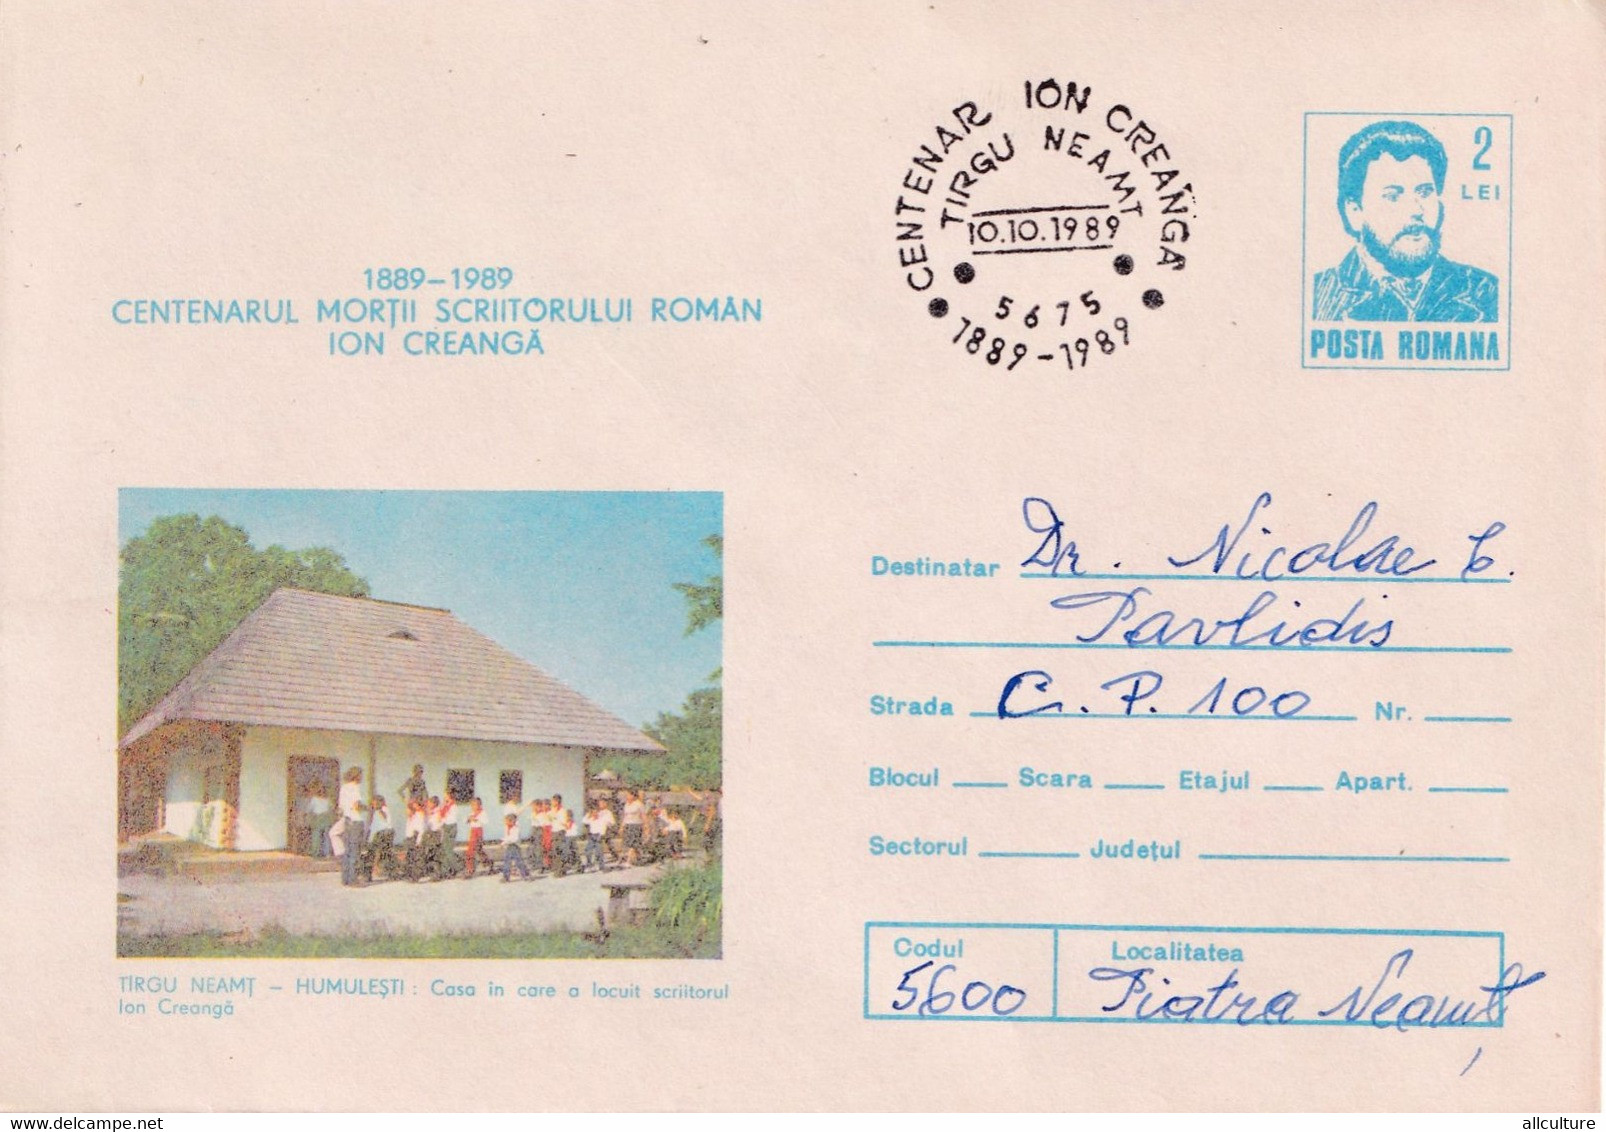 1889–1989
CENTENARUL MORȚII SCRIITORULUI ROMÂN
ION CREANGĂ
CENTENAR ION CREANGĂ
TIRGU NEAMȚ
10.10.1989
5675
1889-1989
2
LEI
POSTA ROMANA
TÎRGU NEAMȚ – HUMULEȘTI : Casa în care a locuit scriitorul
Ion Creangă
Destinatar Dr. Nicolae C.
Pavlidis
Strada C.P. 100 Nr.
Blocul Scara Etajul Apart.
Sectorul Județul
Codul Localitatea
5600 Piatra Neamț
www.delcampe.net
allculture